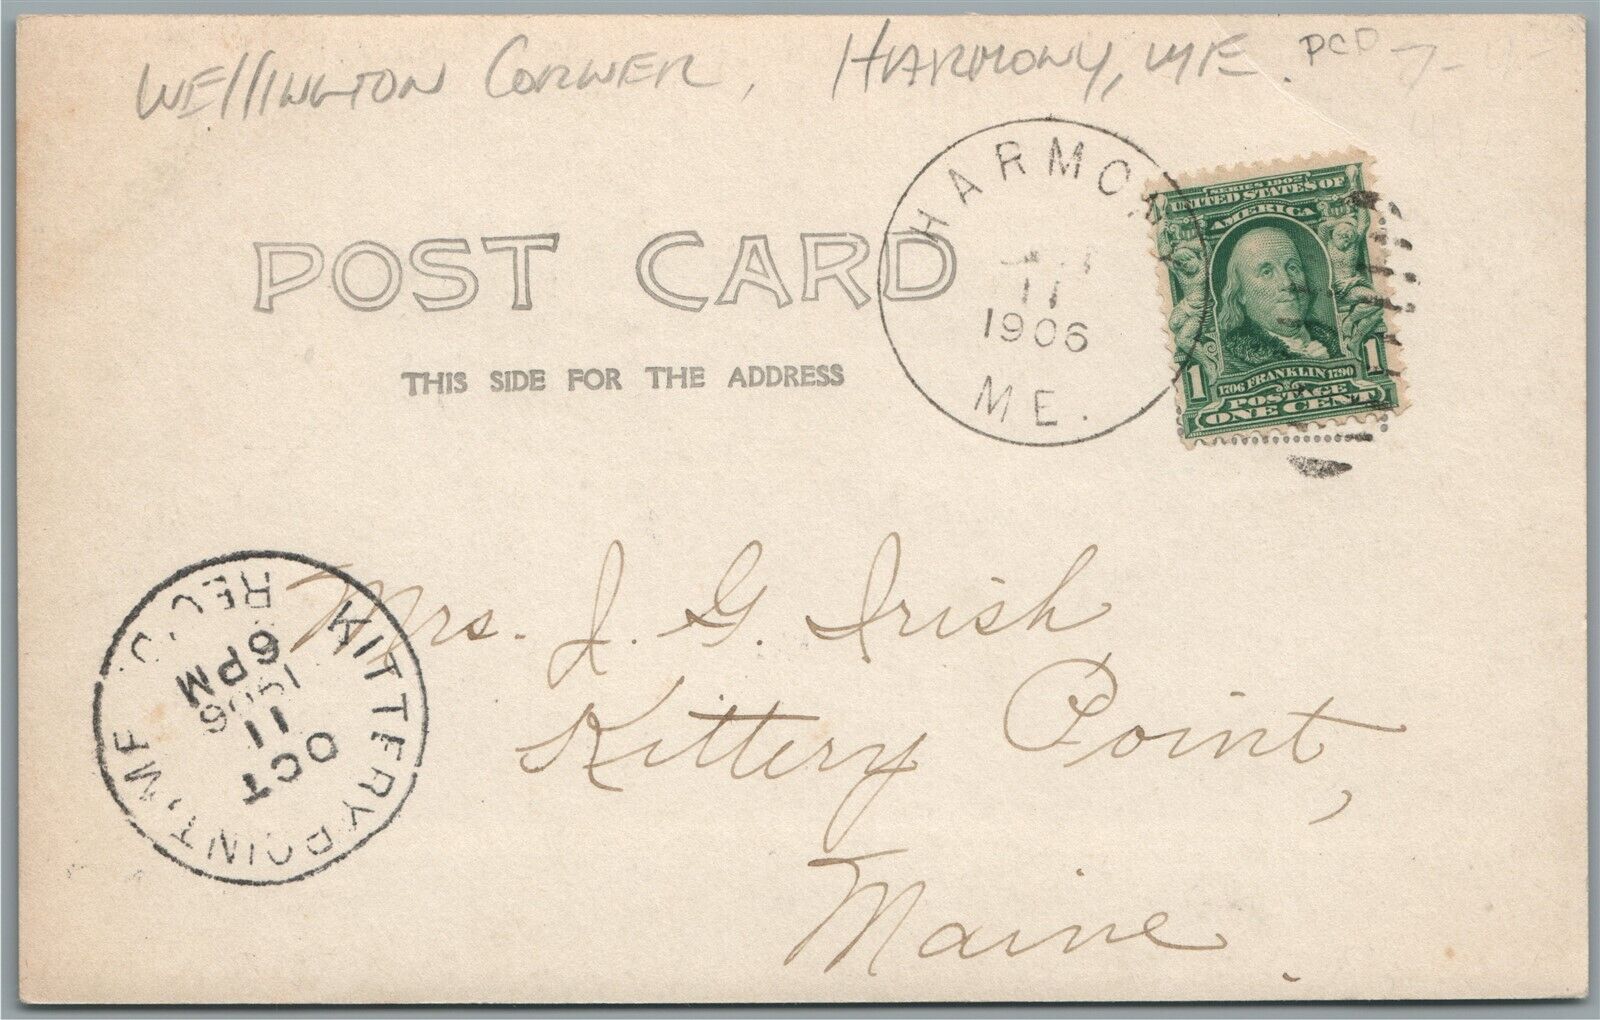 WELLINGTON CORNER, HARMONY, ME. PCP
HARMONY
11
1906
ME.
SERIES 1902
UNITED STATES OF
AMERICA
1 1
1706 FRANKLIN 1790
POSTAGE
ONE CENT
POST CARD
THIS SIDE FOR THE ADDRESS
Mrs. J. G. Irish
Kittery Point,
Maine.
KITTERY POINT, ME.
OCT
11
1906
6 PM
REC'D.